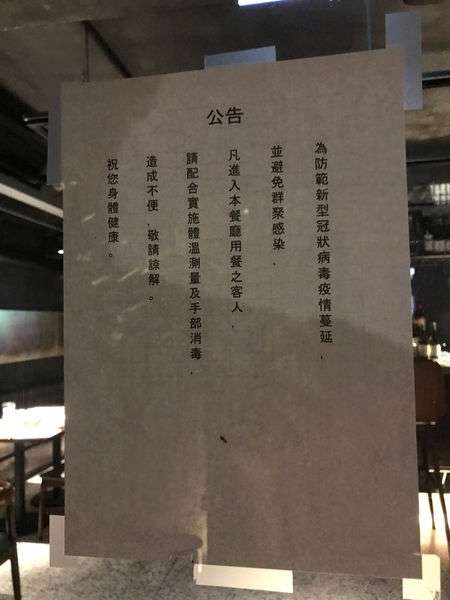 公告
為防範新型冠狀病毒疫情蔓延，
並避免群聚感染，
凡進入本餐廳用餐之客人，
請配合實施體溫測量及手部消毒，
造成不便，敬請諒解。
祝您身體健康。